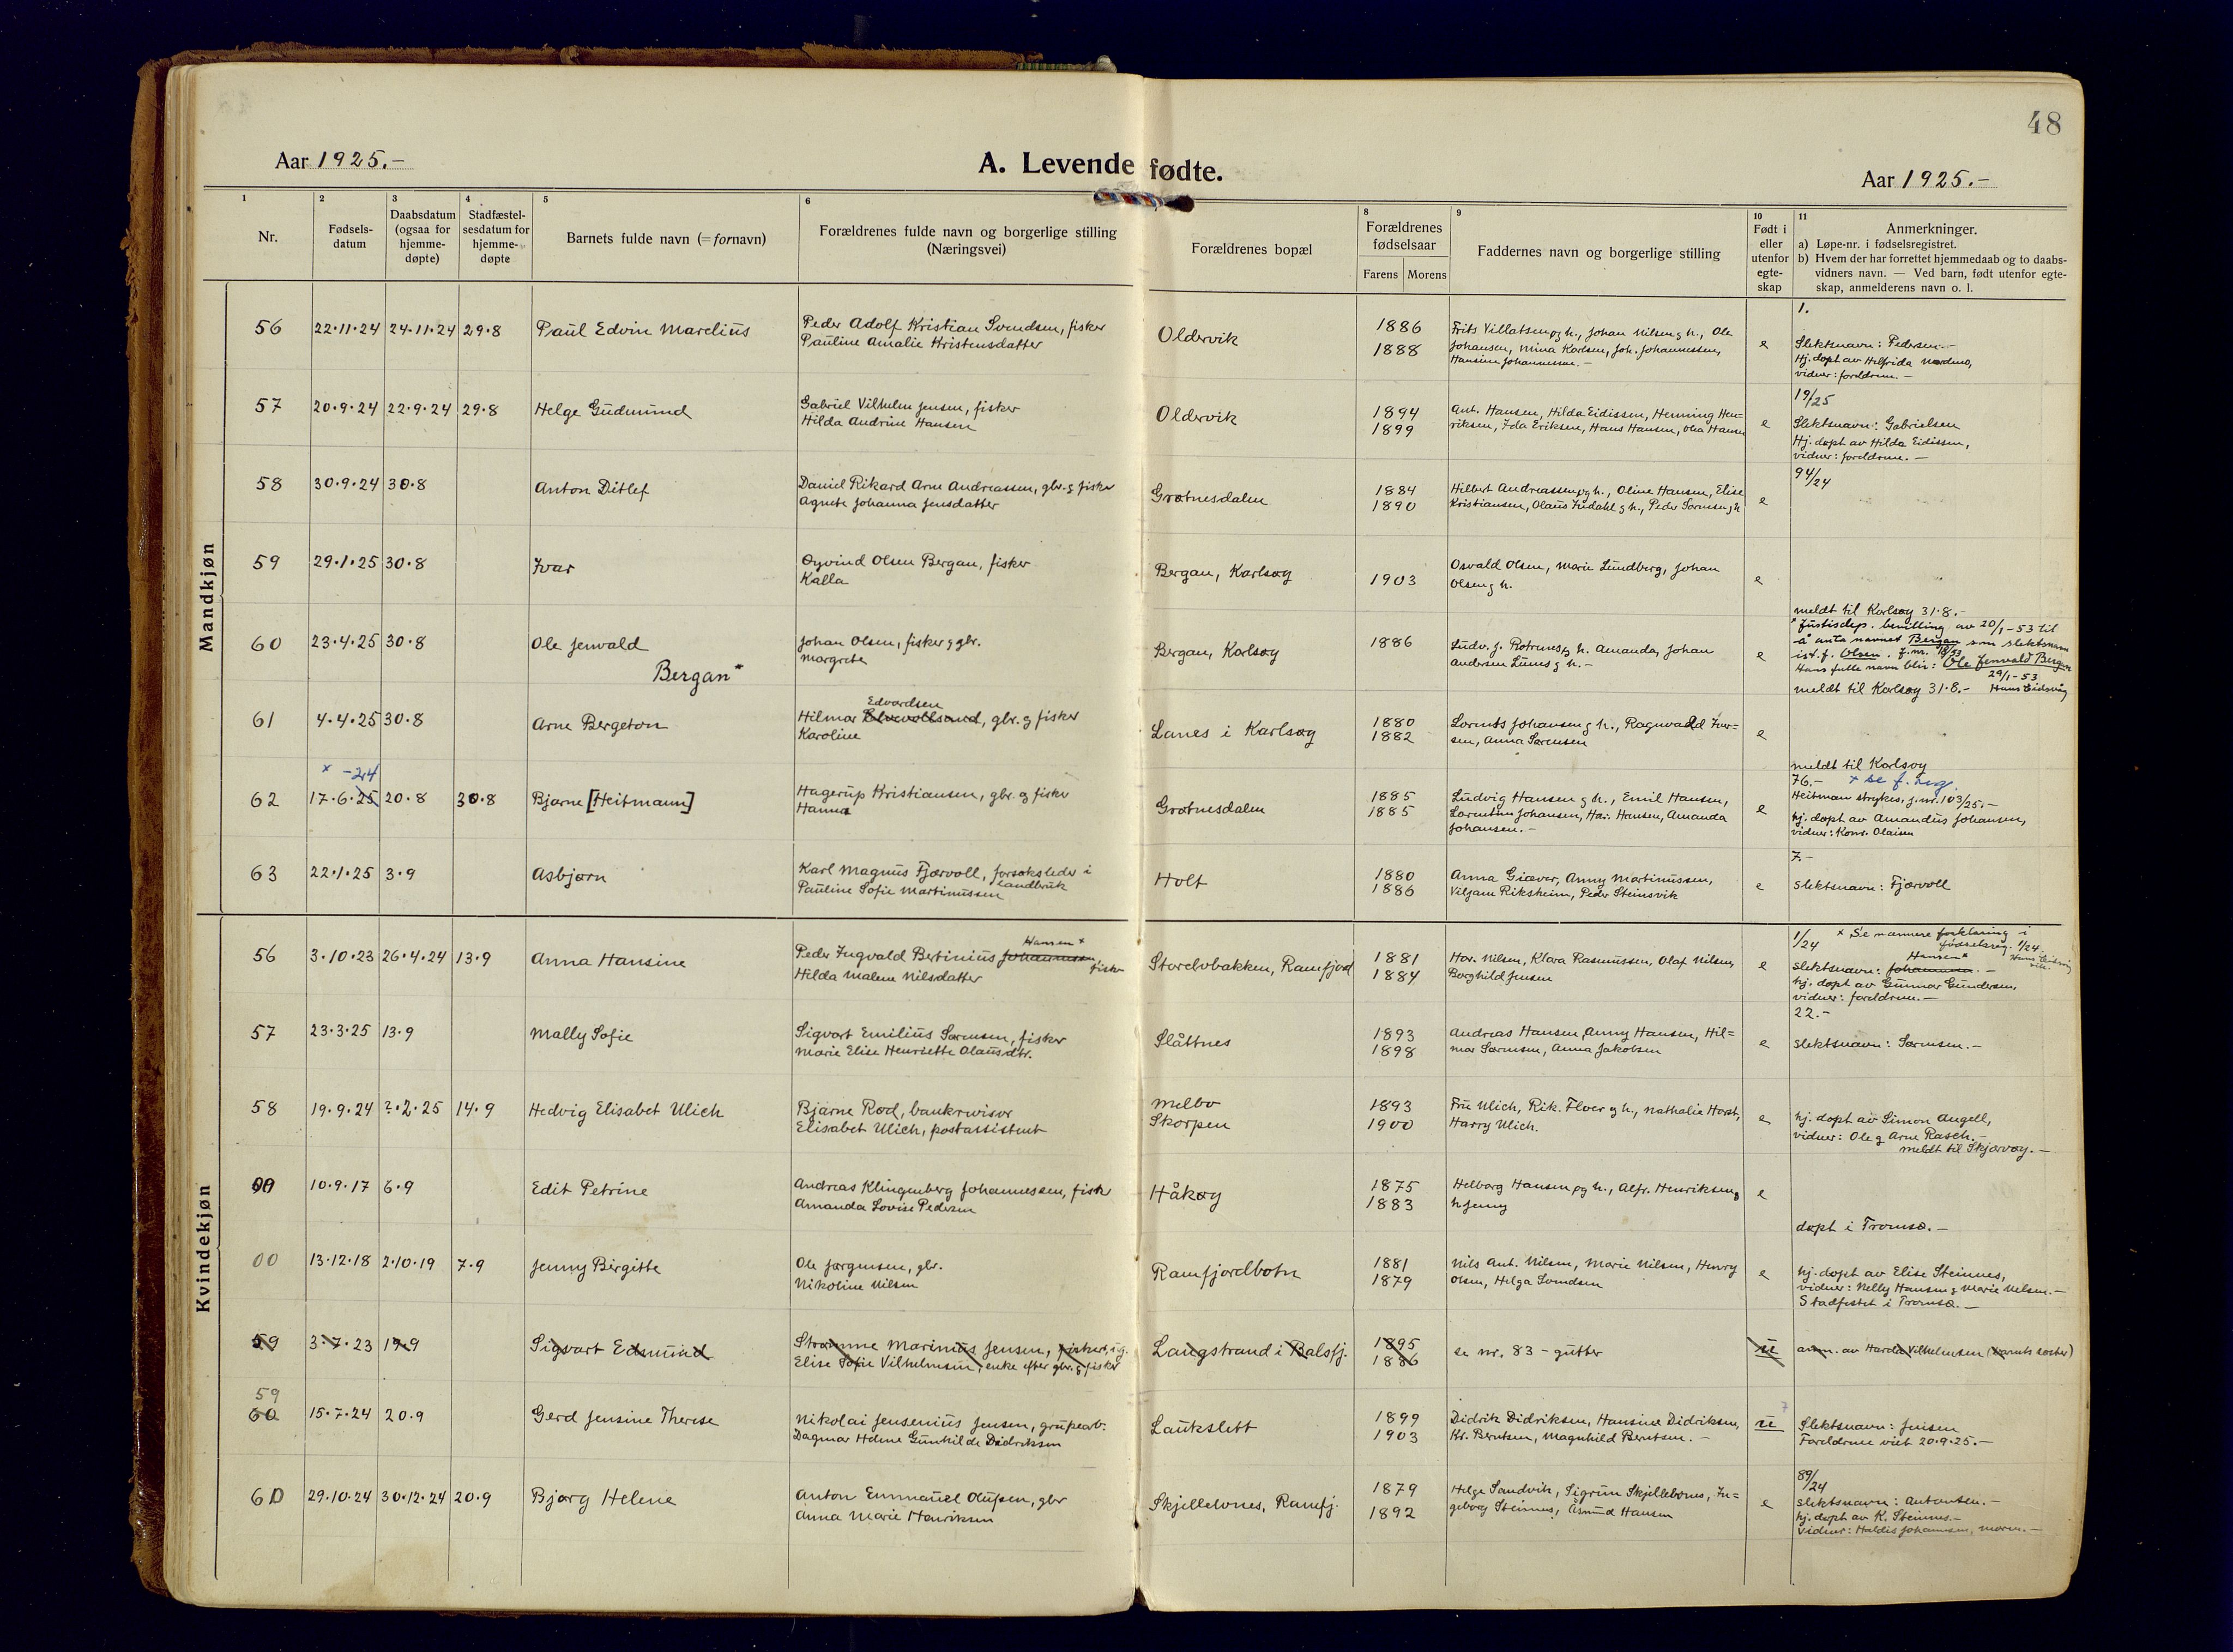 48
Aar 1925.-
A. Levende fødte.
Aar 1925.-
1
Nr.
2
Fødsels-
datum
3
Daabsdatum
(ogsaa for
hjemme-
døpte)
4
Stadfæstel-
sesdatum for
hjemme-
døpte
5
Barnets fulde navn (= fornavn)
6
Forældrenes fulde navn og borgerlige stilling
(Næringsvei)
Forældrenes bopæl
8
Forældrenes
fødselsaar
Farens Morens
9
Faddernes navn og borgerlige stilling
10
Født i
eller
utenfor
egte-
skap
11
Anmerkninger.
a) Løpe-nr. i fødselsregistret.
b) Hvem der har forrettet hjemmedaab og to daabs-
vidners navn. — Ved barn, født utenfor egte-
skap, anmelderens navn o. l.
Mandkjøn
56 22.11.24 24.11.24 29.8 Paul Edvin Marelius
Peder Adolf Kristian Svendsen, fisker
Pauline Amalie Kristensdatter
Oldervik
1886
1888
Frits Villatsen og h., Johan Nilsen g h., Ole
Johansen, Mina Karlsen, Joh. Johannessen,
Hansine Johannessen. -
e
1.
Slektsnavn: Pedersen.-
Hj. døpt av Helfrida Nordmo,
vidner: foreldrene. -
57 20.9.24 22.9.24 29.8 Helge Gudmund
Gabriel Vilhelm Jensen, fisker
Hilda Andrine Hansen
Oldervik
1894
1899
Ant. Hansen, Hilda Eidissen, Henning Hen=
riksen, Ida Eriksen, Hans Hansen, Olea Hansen
e
19/25
Slektsnavn: Gabrielsen
Hj. døpt av Hilda Eidissen,
vidner: foreldrene. -
58 30.9.24 30.8 Anton Ditlef
Daniel Rikard Arne Andreassen, gbr. g fisker
Agnete Johanna Jensdatter
Grøtnesdalen
1884
1890
Hilbert Andreassen og h., Oline Hansen, Elise
Kristiansen, Olaus Indahl g h., Peder Sørensen g h
e
94/24
59 29.1.25 30.8 Ivar
Øyvind Olsen Bergan, fisker
Kalla
Bergan, Karlsøy
1903
Osvald Olsen, Marie Lundberg, Johan
Olsen g h.
e
meldt til Karlsøy 31.8.-
60 23.4.25 30.8 Ole Jenvald
Bergan*
Johan Olsen, fisker g gbr.
Margrete
Bergan, Karlsøy
1886
Ludv. J. Rotvnes og h. Amanda, Johan
Andersen Lunes g h. -
e
* Justisdep. bevilling av 20/1-53 til
å anta navnet Bergan som slektsnavn
ist. f. Olsen. J.nr. 18/53
Hans fulle navn blir: Ole Jenvald Bergan
29/1-53
Hans Eidsvåg
meldt til Karlsøy 31.8.-
61 4.4.25 30.8 Arne Bergeton
Edvardsen
Hilmar Elvevollsund, gbr. g fisker
Karoline
Lanes i Karlsøy
1880
1882
Lorents Johansen g h., Ragnvald Iver=
sen, Anna Sørensen
e
meldt til Karlsøy
x -24
62 17.6.25 20.8 30.8 Bjarne [Heitmann]
Hagerup Kristiansen, gbr. g fisker
Hanna
Grøtnesdalen
1885
1885
Ludvig Hansen g h., Emil Hansen,
Lorentine Johansen, Har. Hansen, Amanda
Johansen. -
e
76.- x se f. reg.
Heitman strykes, j.nr. 103/25.-
hj. døpt av Amandus Johansen,
vidner: Konr. Olaisen
63 22.1.25 3.9 Asbjørn
Karl Magnus Fjærvoll, forsøksleder i
landbruk
Pauline Sofie Martinussen
Holt
1880
1886
Anna Giæver, Anny Martinussen,
Viljam Riksheim, Peder Steinsvik
e
7.-
slektsnavn: Fjærvoll
Kvindekjøn
56 3.10.23 26.4.24 13.9 Anna Hansine
Hansen x
Peder Ingvald Bertinius Johannessen
fisker
Hilda Malene Nilsdatter
Storelvbakken, Ramfjord
1881
1884
Har. Nilsen, Klara Rasmussen, Olaf Nilsen,
Borghild Jensen
e
1/24 x Se nærmere forklaring i
fødselsreg. 1/24.
Hansen*
slektsnavn: Johannessen. -
hj. døpt av Gunnar Gundersen,
vidner: foreldrene. -
57 23.3.25 13.9 Mally Sofie
Sigvart Emilius Sørensen, fisker
Marie Elise Henriette Olausdtr.
Slåttnes
1893
1898
Andreas Hansen, Anny Hansen, Hil=
mar Sørensen, Anna Jakobsen
e
22.-
slektsnavn: Sørensen. -
58 19.9.24 ?.2.25 14.9 Hedvig Elisabet Ulich
Bjarne Rød, bankrevisor
Elisabet Ulich, postassistent
Melbo
Skorpen
1893
1900
Fru Ulich, Rik. Floer g h., Nathalie Horst,
Harry Ulich.
e
hj. døpt av Simon Angell,
vidner: Ole g Arne Rasch. -
meldt til Skjærvøy. -
00 10.9.17 6.9 Edit Petrine
Andreas Klingenberg Johannessen, fisker
Amanda Lovise Pedersen
Håkøy
1875
1883
Helborg Hansen og h., Alfr. Henriksen g
h Jenny
e
døpt i Tromsø. -
00 13.12.18 2.10.19 7.9 Jenny Birgitte
Ole Jørgensen, gbr.
Nikoline Nilsen
Ramfjordbotn
1881
1879
Nils Ant. Nilsen, Marie Nilsen, Henry
Olsen, Helga Svendsen
e
hj. døpt av Elise Steinnes,
vidner: Nelly Hansen g Marie Nelsen. -
Stadfestet i Tromsø. -
59 3.7.23 19.9 Sigvart Edmund
Strømme Marinius Jensen, fisker, ug.
Elise Sofie Vilhelmsen, enke efter gbr. g fisker
Langstrand i Balsfj.
1895
1886
se nr. 83 - gutter
u
anm. av Harda Vilhelmsen (barnets søster)
59
60 15.7.24 20.9 Gerd Jensine Therese
Nikolai Jensenius Jensen, grubearb.
Dagmar Helene Gunhilde Didriksen
Laukslett
1899
1903
Didrik Didriksen, Hansine Didriksen,
Kr. Berntsen, Magnhild Berntsen. -
u
Slektsnavn: Jensen
Foreldrene viet 20.9.25. -
60 29.10.24 30.12.24 20.9 Bjørg Helene
Anton Emmanuel Olufsen, gbr
Anna Marie Henriksen
Skjellelvnes, Ramfj.
1879
1892
Helge Sandvik, Sigrun Skjellelvnes, In=
geborg Steinnes, Åsmund Hansen
e
89/24
slektsnavn: Antonsen. -
hj. døpt av K. Steinnes. -
vidner: Haldis Johannesen, moren. -